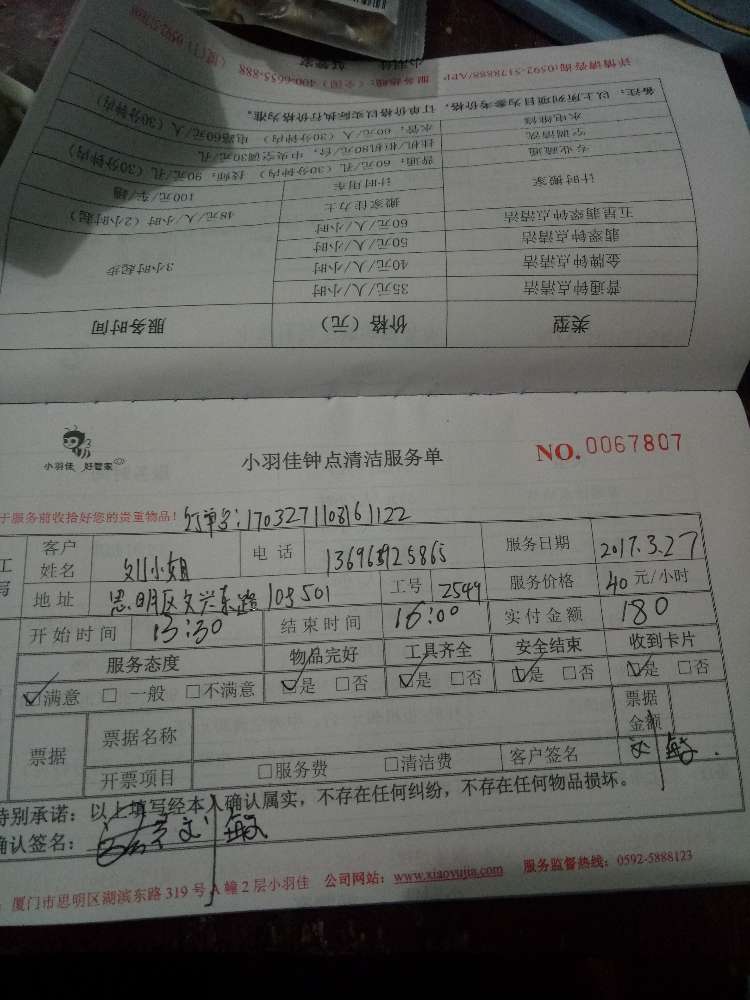 详情请咨询:0592-5178888/APP 服务热线：(全国) 400-6655-888 (厦门) 0592-
备注：以上所列项目为参考价格，订单价格以实际执行价格为准。
水电维修 水管，60元/人/（30分钟内） 电路60元/人/（30分钟内）
空调清洗 挂机/柜机80元/台，中央空调30元/孔
专业疏通 普通，60元/孔（30分钟内） 技师，90元/孔（30分钟内）
计时搬家 计时用车 100元/车/趟
搬家佳力士 48元/人/小时（2小时起）
五星翡翠钟点清洁 60元/人/小时
翡翠钟点清洁 50元/人/小时
金牌钟点清洁 40元/人/小时 3小时起步
普通钟点清洁 35元/人/小时
类型 价格（元） 服务时间
小羽佳 好管家 小羽佳钟点清洁服务单 NO. 0067807
于服务前收拾好您的贵重物品！ 订单号:1703271103161122
客户姓名 刘小姐 电话 服务日期 2017.3.27
地址 思明区文兴东路 109 501 工号 2549 服务价格 40元/小时
开始时间 13:30 结束时间 16:00 实付金额 180
服务态度 物品完好 工具齐全 安全结束 收到卡片
☑满意 □一般 □不满意 ☑是 □否 ☑是 □否 ☑是 □否 ☑是 □否
票据 票据名称 票据金额
开票项目 □服务费 □清洁费 客户签名
特别承诺：以上填写经本人确认属实，不存在任何纠纷，不存在任何物品损坏。
确认签名：
厦门市思明区湖滨东路 319 号 A 幢 2 层小羽佳 公司网站：www.xiaoyujia.com 服务监督热线：0592-5888123